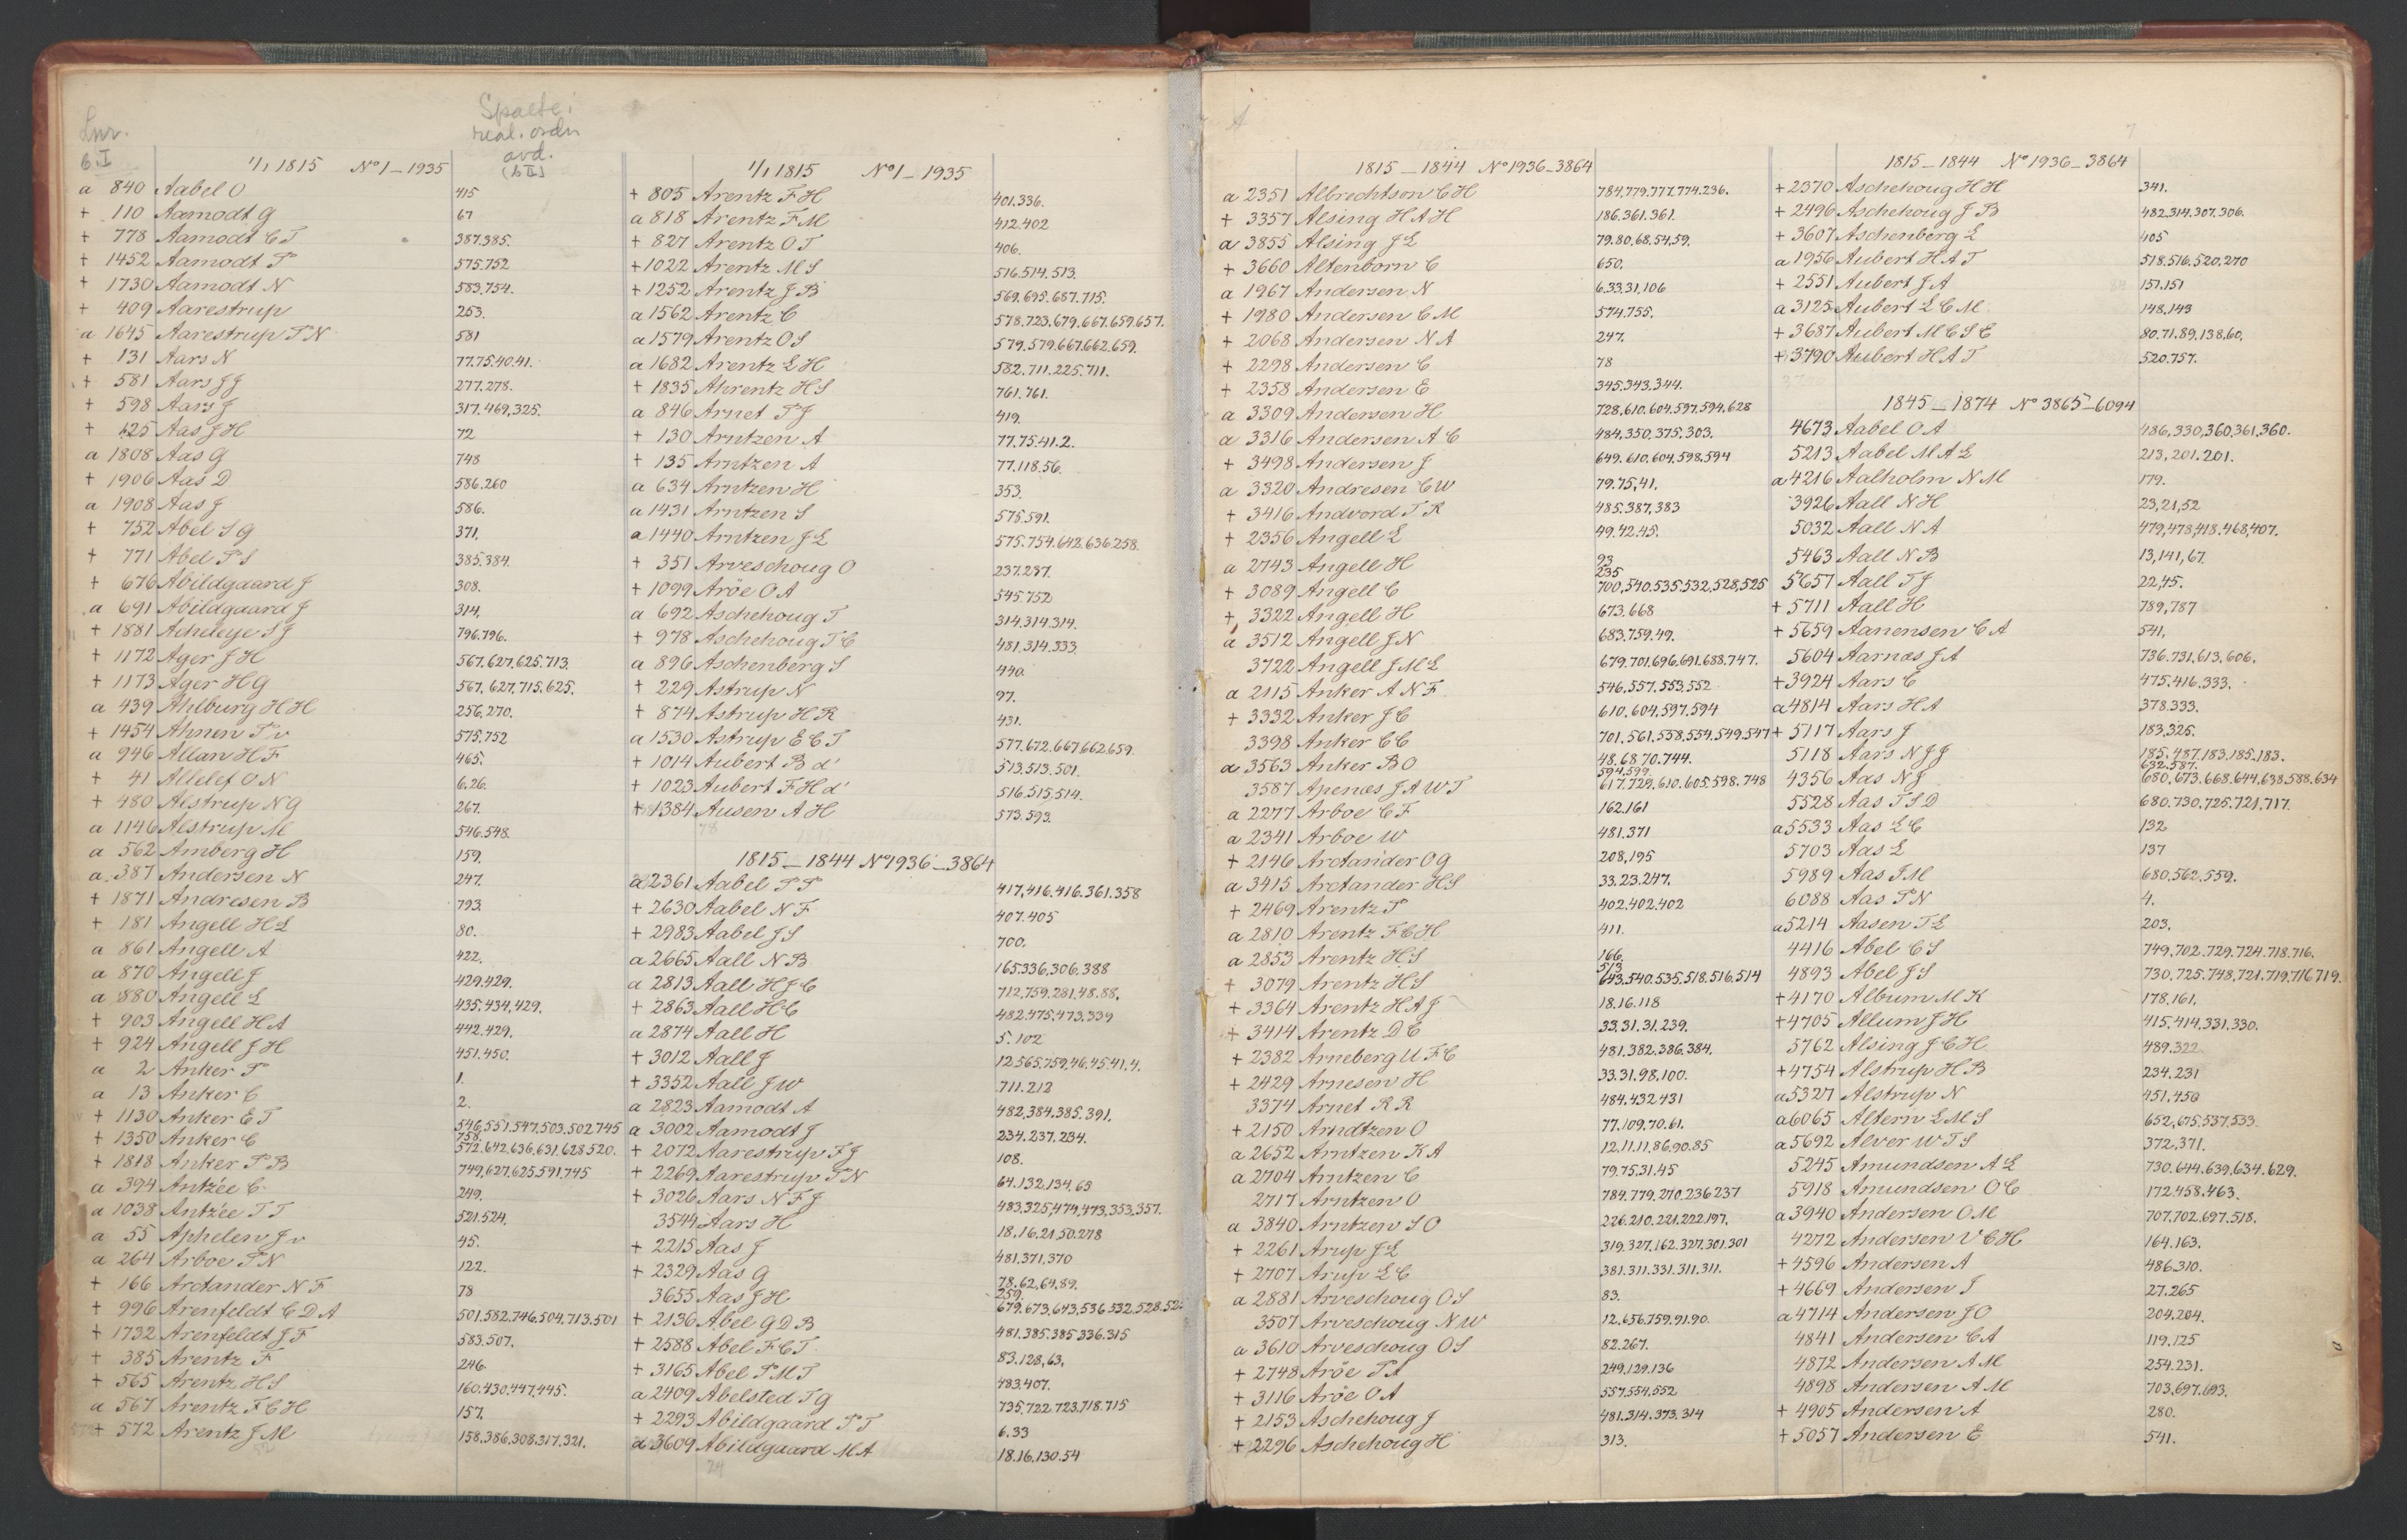 Lnr.
b. I
Spalte i
real. ordn
avd.
(b II)
1/1 1815 No 1 – 1935
a 840 Aabel O 415
+ 110 Aamodt G 67
+ 778 Aamodt C T 387.385.
+ 1452 Aamodt P 575.752
+ 1730 Aamodt N 583.754.
+ 409 Aarestrup 253.
a 1645 Aarestrup P N 581
+ 131 Aars N 77.75.40.41.
+ 581 Aars J J 277.278.
+ 598 Aars J 317.469,325.
+ 125 Aas J H 72
a 1808 Aas G 748
+ 1906 Aas D 586.260
a 1908 Aas J 586.
+ 752 Abel S G 371.
+ 771 Abel P S 385.384.
+ 676 Abildgaard J 308.
a 691 Abildgaard J 314.
+ 1881 Acheleye S J 796.796.
+ 1172 Ager J H 567.627.625.713.
+ 1173 Ager H G 567.627.715.625.
a 439 Ahlburg H H 256,270.
+ 1454 Ahnen P v 575.752
a 946 Allan H F 465.
+ 41 Allelef O N 6.26.
+ 480 Alstrup N G 267.
a 1146 Alstrup M 546.548.
a 562 Amberg H 159.
a 387 Andersen N 247.
+ 1871 Andresen B 793.
+ 181 Angell H L 80.
a 861 Angell A 422.
a 870 Angell J 429.429.
a 880 Angell L 435.434,429.
+ 903 Angell H A 442.429.
+ 924 Angell J H 451.450.
a 2 Anker P 1.
a 13 Anker C 2.
+ 1130 Anker E T 546,551.547,503.502.745
758.
+ 1350 Anker C 572.642.636.631.628.520.
+ 1818 Anker P B 749,627.625.591.745
a 394 Antzée C 249.
a 1038 Antzée T T 521.524.
a 55 Aphelen J v 45.
a 264 Arboe P N 122.
+ 166 Arctander N F 78
+ 996 Arenfeldt C D A 501.582.746.504.713.501
+ 1732 Arenfeldt J F 583.507.
+ 385 Arentz F 246.
+ 565 Arentz H S 160.430.447.445.
a 567 Arentz F C H 157.
+ 572 Arentz J M 158.386.308.317.321.
1/1 1815 No 1 – 1935
+ 805 Arentz F H 401.336.
a 818 Arentz F M 412.402
+ 827 Arentz O T 406.
+ 1022 Arentz M S 516.514.513.
+ 1252 Arentz J B 569.695.687.715.
a 1562 Arentz C 578.723.679.667.659.657.
a 1579 Arentz O S 579.579.667.662.659.
a 1682 Arentz L H 582.711.225.711.
+ 1835 Ahrentz H S 761.761.
a 846 Arnet P J 419.
+ 130 Arntzen A 77.75.41.2.
+ 135 Arntzen A 77.118.56.
a 634 Arntzen H 353.
a 1431 Arntzen S 575.591.
a 1440 Arntzen J L 575.754.642.636.258.
+ 351 Arveschoug O 237.237.
+ 1099 Aröe O A 545.752
a 692 Aschehoug T 314.314.314.
+ 978 Aschehoug T C 481.314.333.
a 896 Aschenberg S 440.
+ 229 Astrup N 97.
+ 874 Astrup H R 431.
a 1530 Astrup E C T 577.672.667.662.659.
+ 1014 Aubert B d' 513.513.501.
+ 1023 Aubert F H d' 516.515,514.
+ 1384 Ausen A H 573.593.
1815 – 1844 No 1936 – 3864
a 2361 Aabel P P 417,416.416.361.358
+ 2630 Aabel N F 407.405
+ 2983 Aabel J S 700.
a 2665 Aall N B 165.336,306.388
a 2813 Aall H J C 712,759.281,48.88.
+ 2863 Aall H C 482.475.473.339
a 2874 Aall H 5.102
+ 3012 Aall J 12.565.759.46.45.41.4.
+ 3352 Aall J W 711.212
a 2823 Aamodt A 482,384.385.391.
a 3002 Aamodt J 234.237.234.
+ 2072 Aarestrup F J 108.
+ 2269 Aarestrup P N 64.132.134.65
+ 3026 Aars N F J 483.325,474,473,353,357.
3544 Aars H 18,16.21,50.278
+ 2215 Aas J 481.371,370
+ 2329 Aas G 78.62,64,89.
259.
3655 Aas J H 679.673,643,536.532.528.52
+ 2136 Abel G D B 481.385.385.336.315
+ 2588 Abel F C T 83.128,63,
+ 3165 Abel P M T 483.407.
a 2409 Abelsted T G 735,722.723.718.715
+ 2293 Abildgaard P T 6.33
a 3609 Abildgaard M A 18.16.130.54
A
7
1815 – 1844 No 1936 – 3864
a 2351 Albrechtson C H 784.779.777.774.236.
+ 3357 Alsing H A H 186.361.361.
a 3855 Alsing J L 79.80,68,54.59.
+ 3660 Altenborn C 650.
a 1967 Andersen N 6.33.31,106
+ 1980 Andersen C M 574.755.
+ 2068 Andersen N A 247.
+ 2298 Andersen C 78
+ 2358 Andersen E 345.343.344.
a 3309 Andersen H 728,610.604.597.594.628
a 3316 Andersen A C 484,350,375,303.
+ 3498 Andersen J 649.610.604.598.594
a 3320 Andresen C W 79.75,41.
+ 3416 Andvord T R 485.387,383
+ 2356 Angell L 49.42.45.
a 2743 Angell H 93
235
+ 3089 Angell C 700,540.535.532,528,525
+ 3322 Angell H 673.668
a 3512 Angell J N 683.759.49.
3722 Angell J M L 679.701,696,691.688.747.
a 2115 Anker A N F 546,557.553,552
+ 3332 Anker J C 610.604,597.594
3398 Anker C C 701,561,558,554.549.547
a 3563 Anker B O 48.68 70.744.
594.599.
3587 Apenæs J A W T 617.724,610.605.598.748
a 2277 Arboe C F 162.161
a 2341 Arboe W 481.371
+ 2146 Arctander O G 208,195
a 3415 Arctander H S 33.23.247.
+ 2469 Arentz P 402.402.402
a 2810 Arentz F C H 411.
a 2853 Arentz H S 166.
513
+ 3079 Arentz H S 643.540.535.518.516.514
+ 3364 Arentz H A J 18.16.118
+ 3414 Arentz D C 33.31.31.239.
+ 2382 Arneberg U F C 481.382.386.384.
+ 2429 Arnesen H 33.31.98,100.
3374 Arnet R R 484.432.431
+ 2150 Arndtzen O 77.109.70.61.
a 2652 Arntzen K A 12.11.11.86.90.85
a 2704 Arntzen C 79.75.31.45
2717 Arntzen O 784.779.270.236 237
a 3840 Arntzen S O 226.210.221.222.197.
+ 2261 Arup J L 319.327.162.327,301.301
+ 2707 Arup L C 381.311.331.311.311.
a 2881 Arveschoug O S 83.
3507 Arveschoug N W 12.656.759.91.90.
a 3610 Arveschoug O S 82.267.
+ 2748 Aröe P A 249,129.136
+ 3116 Aröe O A 557.554.552
+ 2153 Aschehoug J 481.314.373.314
+ 2296 Aschehoug H 313.
1815 – 1844 No 1936 – 3864
+ 2370 Aschehoug H H 341.
+ 2496 Aschehoug J B 482.314.307.306.
+ 3607 Aschenberg L 405
a 1956 Aubert H A T 518.516.520.270
+ 2551 Aubert J A 151.151
a 3125 Aubert L C M 148.149
+ 3687 Aubert M C S E 80.71.89.138.60.
+ 3790 Aubert H A T 520.757.
1845 – 1874 No 3865 – 6094
4673 Aabel O A 486,330,360,361,360.
5213 Aabel M A L 213,201.201.
a 4216 Aalholm N M 179.
3926 Aall N H 23,21,52
5032 Aall N A 479,478,418.468,407.
5463 Aall N B 13,141,67.
5657 Aall T J 22,45.
+ 5711 Aall H 789,787
+ 5659 Aanensen C A 541,
5604 Aarnæs J A 736.731,613,606.
+ 3924 Aars C 475.416.333.
a 4814 Aars H A 378.333.
+ 5117 Aars J 183,325.
5118 Aars N J J 185.487.183.185.183.
632.587.
4356 Aas N J 680,673.668.644.638.588.634
5528 Aas T S D 680.730.725.721,717.
a 5533 Aas L C 132
5703 Aas L 137
5989 Aas J M 680,562.559.
6088 Aas P N 4.
a 5214 Aasen T L 203.
4416 Abel C S 749,702.729.724.718.716.
4893 Abel J S 730,725.748,721.719,716 719.
+ 4170 Album M K 178,161.
+ 4705 Allum J H 415.414.331.330.
5762 Alsing J C H 489.322
+ 4754 Alstrup H B 234.231
a 5327 Alstrup N 451.450
a 6065 Altern L M S 652,675,537.533.
a 5692 Alver W T S 372,371.
5245 Amundsen A L 730.644.639,634.629.
5918 Amundsen O C 172.458.463.
a 3940 Andersen O M 707.702.697.518.
4272 Andersen V C H 164.163.
+ 4596 Andersen A 486.310.
+ 4669 Andersen J 27.265
a 4714 Andersen J O 204.204.
4841 Andersen C A 119.125
4872 Andersen A M 254.231.
4898 Andersen A M 703,697.693.
+ 4905 Andersen A 280.
+ 5057 Andersen E 541.